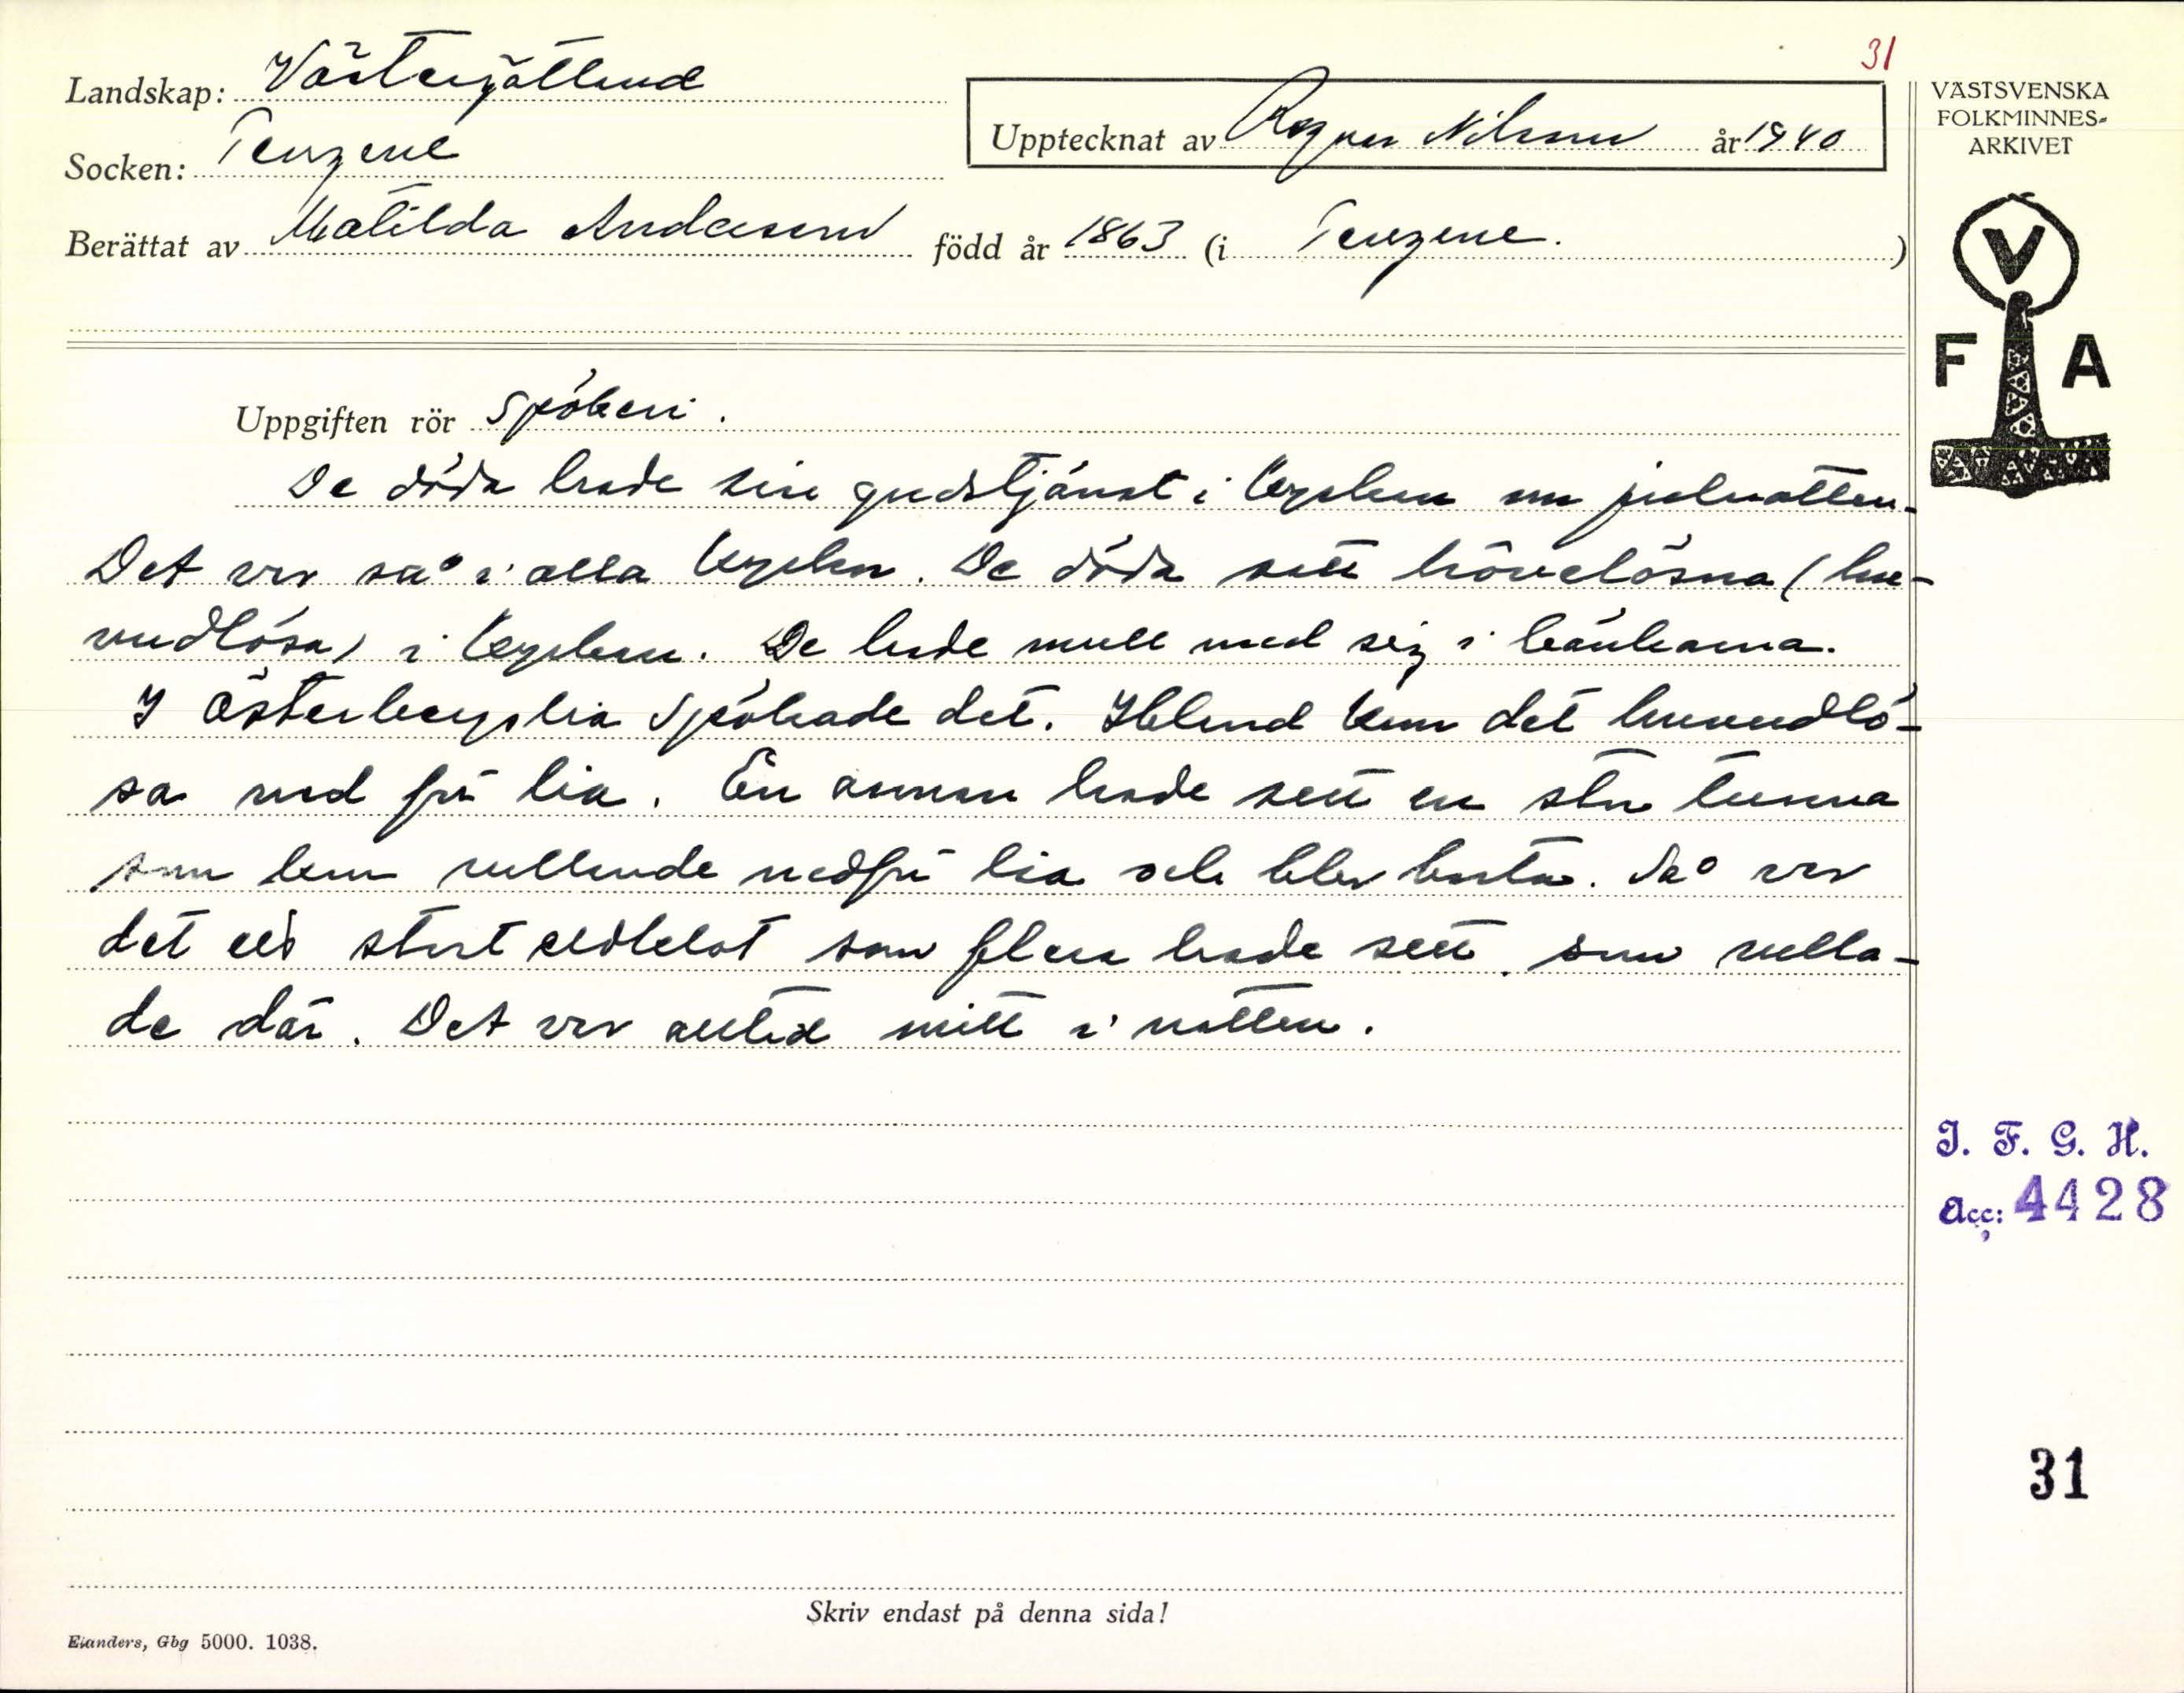 31
Landskap: Västergötland
Upptecknat av Ragnar Nilsson år 1940
VÄSTSVENSKA
FOLKMINNES-
ARKIVET
Socken: Tengene
Berättat av Matilda Andersson född år 1863 (i Tengene.)
V
F A
Uppgiften rör Spökeri.
De döda hade sin gudstjänst i kyrkan om julnatten.
Det var så i alla kyrkor. De döda satt hövelösna (hu-
vudlösa) i kyrkan. De hade mull med sig i bänkarna.
I Österbergslia spökade det. Ibland kom det huvudlö-
sa ned för lia. En annan hade sett en stor tunna
som kom rullande nedför lia och blev borta. Så var
det ett stort eldklot som flera hade sett som rulla-
de där. Det var alltid mitt i natten.
I. F. G. H.
Acc: 4428
31
Skriv endast på denna sida!
Elanders, Gbg 5000. 1038.